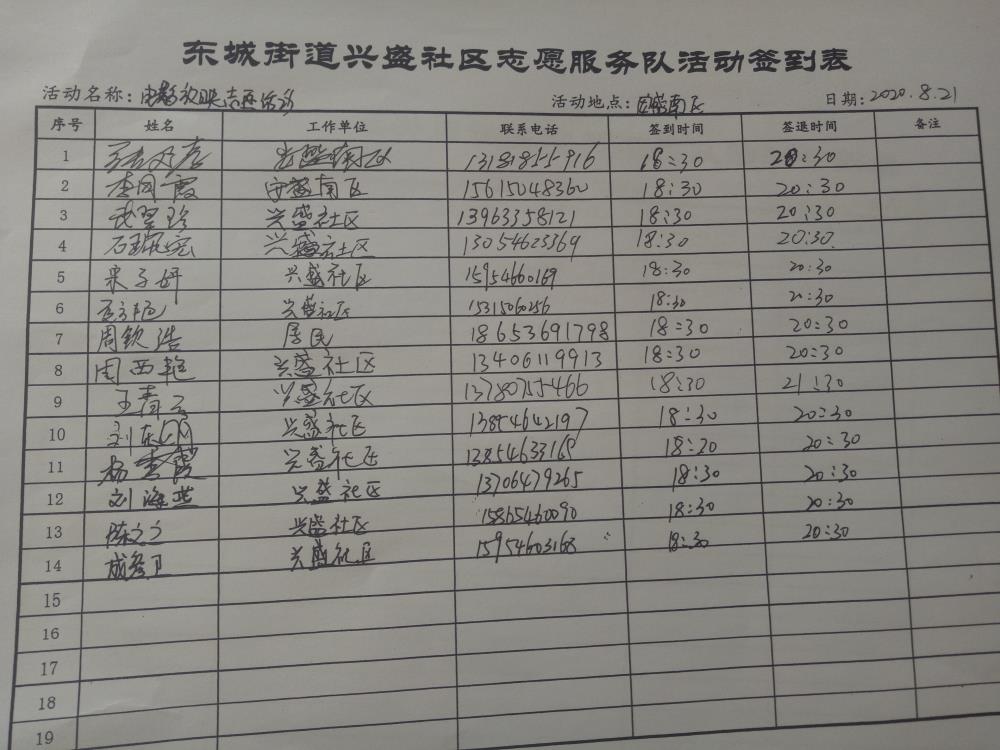 东城街道兴盛社区志愿服务队活动签到表
活动名称：电影放映志愿活动 活动地点：南区 日期：2020.8.21
序号 姓名 工作单位 联系电话 签到时间 签退时间 备注
1 南区 13181855916 18:30 20:30
2 李国霞 安盛南区 15615048360 18:30 20:30
3 武翠珍 兴盛社区 13963358121 18:30 20:30
4 石 兴盛社区 13054623369 18:30 20:30
5 栗子妍 兴盛社区 15954660169 18:30 20:30
6 兴盛社区 15315060256 18:30 20:30
7 周钦浩 居民 18653691798 18:30 20:30
8 周西艳 兴盛社区 13406119913 18:30 20:30
9 王青云 兴盛社区 13780755466 18:30 21:30
10 刘东 兴盛社区 13854642197 18:30 20:30
11 杨秀霞 兴盛社区 13854633165 18:30 20:30
12 刘海燕 兴盛社区 13706479265 18:30 20:30
13 陈文文 兴盛社区 15865460090 18:30 20:30
14 成 兴盛社区 15954603168 18:30 20:30
15
16
17
18
19